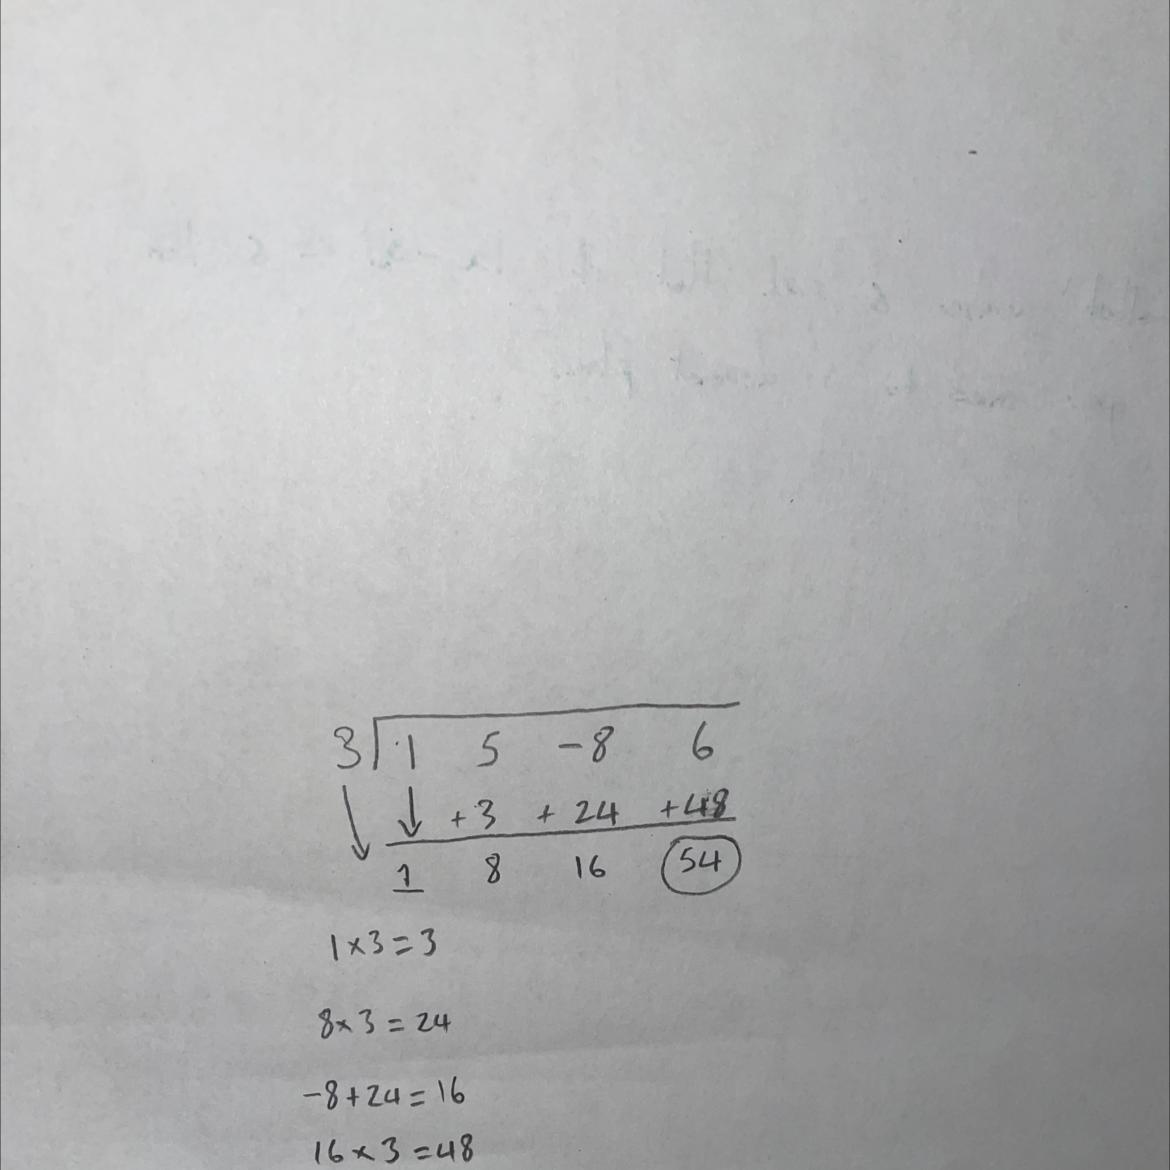 3 1 5 -8 6
+3 +24 +48
1 8 16 54
1×3=3
8×3=24
-8+24=16
16×3=48